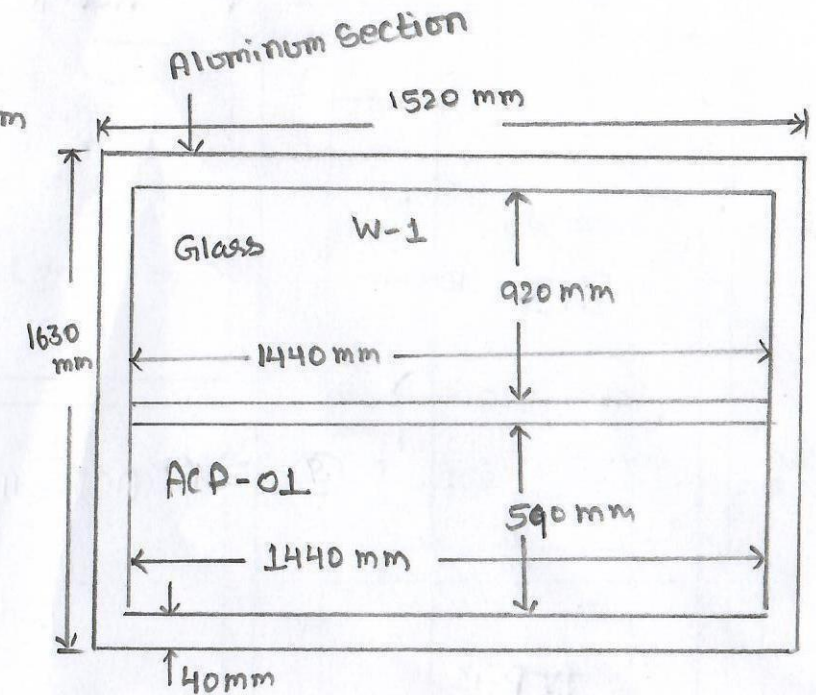 Aluminum Section
m
1520 mm
Glass
W-1
920 mm
1630
mm
1440 mm
ACP-01
590 mm
1440 mm
40mm